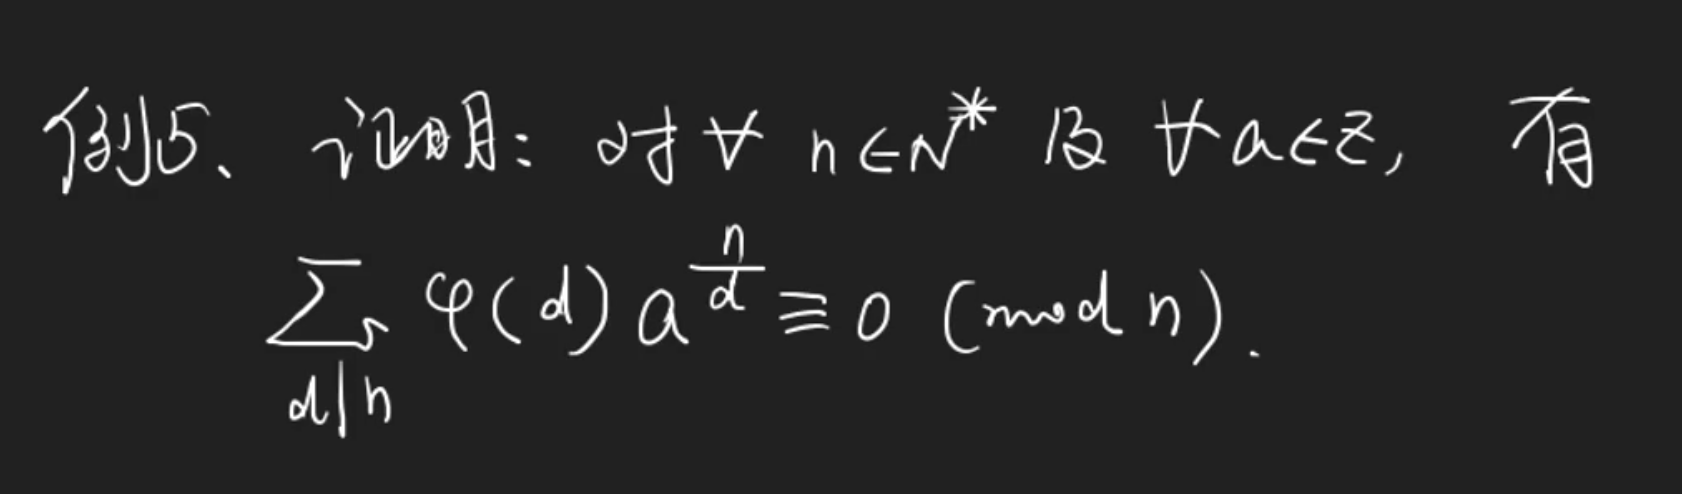 例5、证明：对∀ n∈N* 及 ∀a∈Z, 有
∑_{d|n} φ(d) a^{n/d} ≡ 0 (mod n).